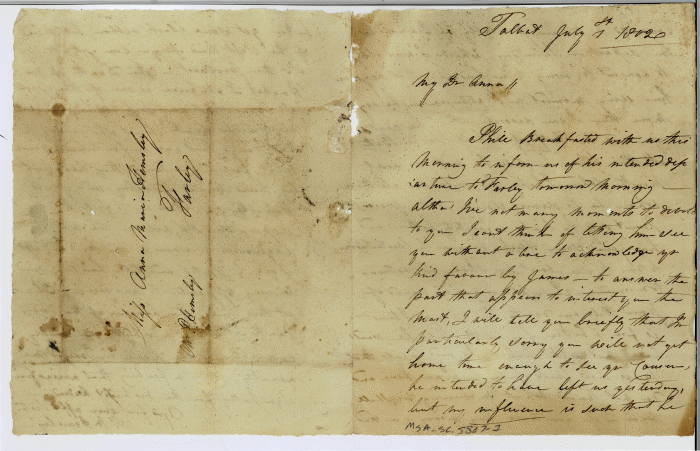 Miss Anna Maria Hemsley
Farley
Hemsley
Talbot July 1st 1802
My Dr. Anna
Phile Breakfasted with us this
Morning to inform us of his intended dep
arture to Farley tomorrow Morning —
altho' I've not many moments to devote
to you I cant think of letting him see
you without a line to acknowledge yr
kind favour by James — to answer the
part that appears to interest you the
most, I will tell you briefly that I'm
particularly sorry you will not get
home time enough to see yr Cousin,
he intended to have left us yesterday,
but my influence is such that he
MSA-SC 5807-1